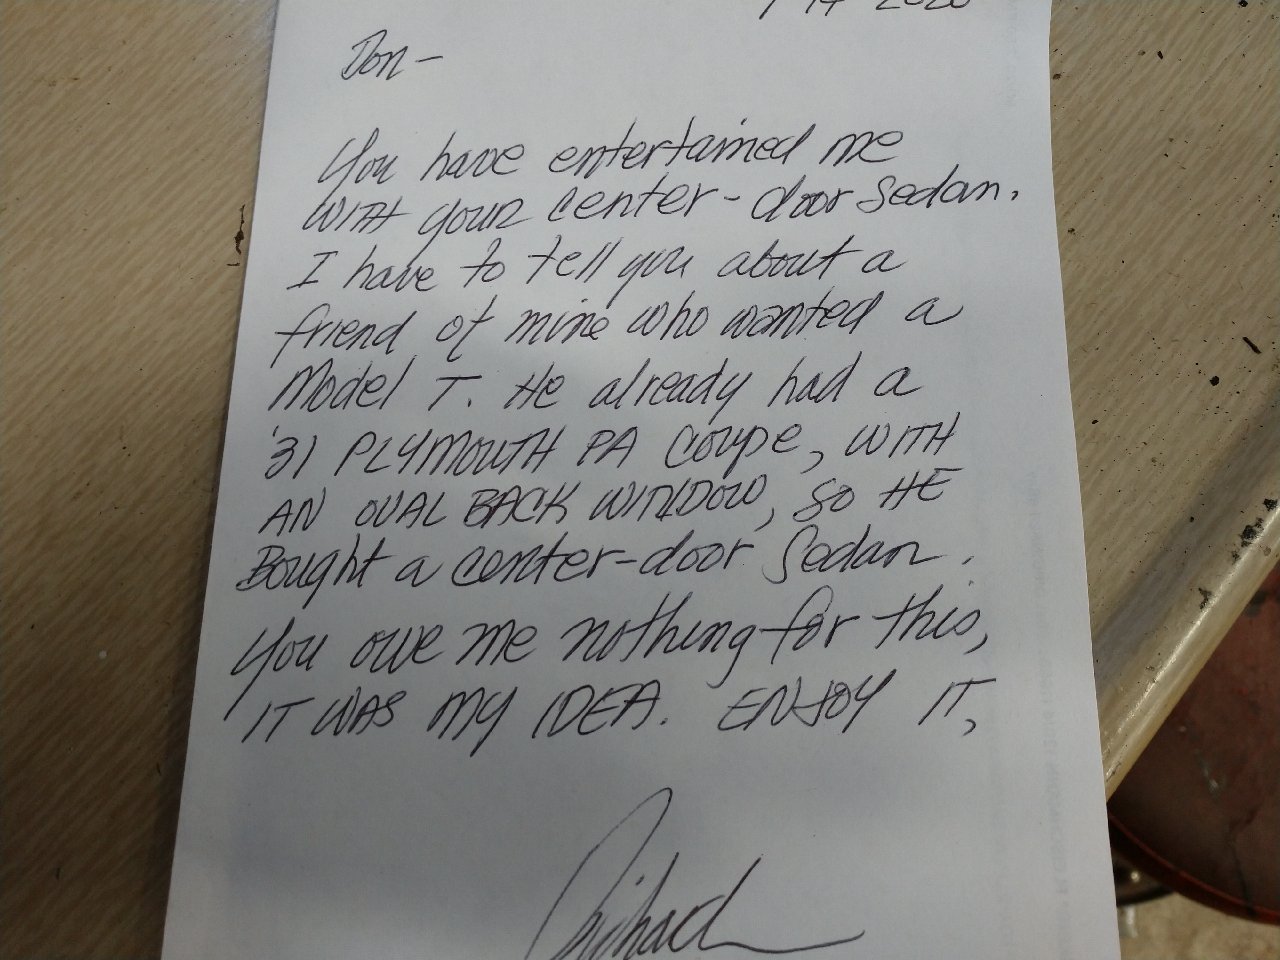 2020
Don -
You have entertained me
WITH your center-door Sedan.
I have to tell you about a
friend of mine who wanted a
Model T. He already had a
'31 PLYMOUTH PA Coupe, WITH
AN OVAL BACK WINDOW, SO HE
Bought a center-door Sedan.
You owe me nothing for this,
IT WAS MY IDEA. ENJOY IT,
Richard